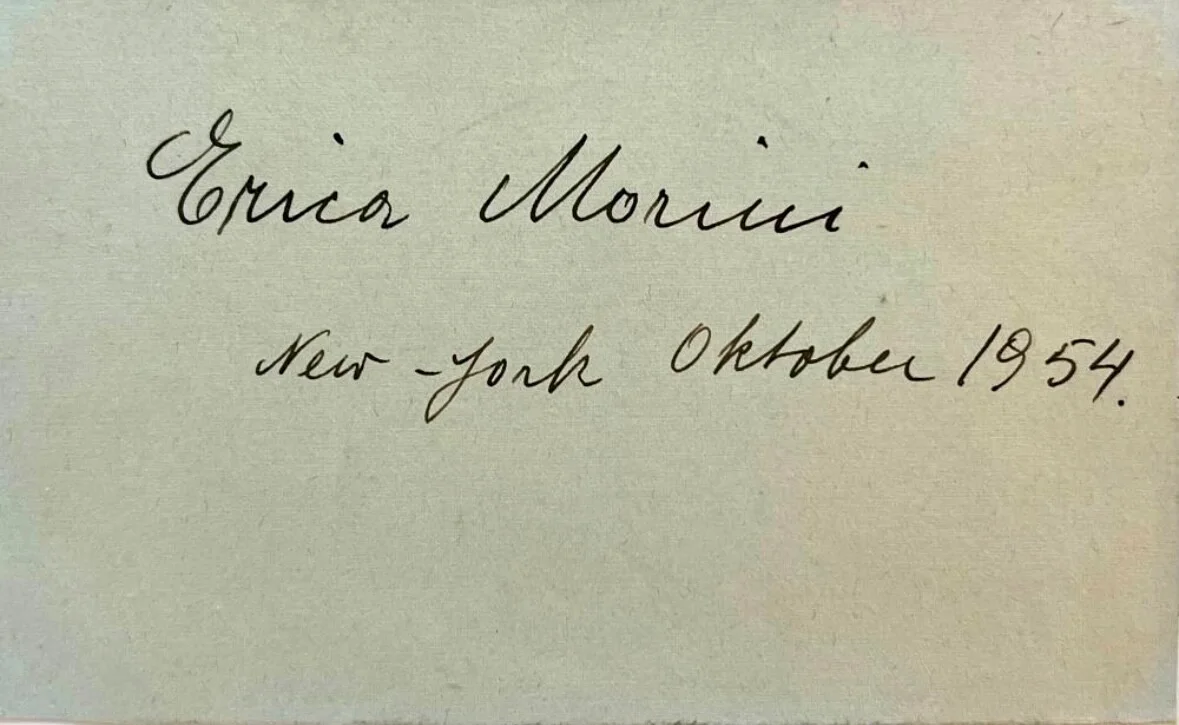 Erica Morini
New-York Oktober 1954.